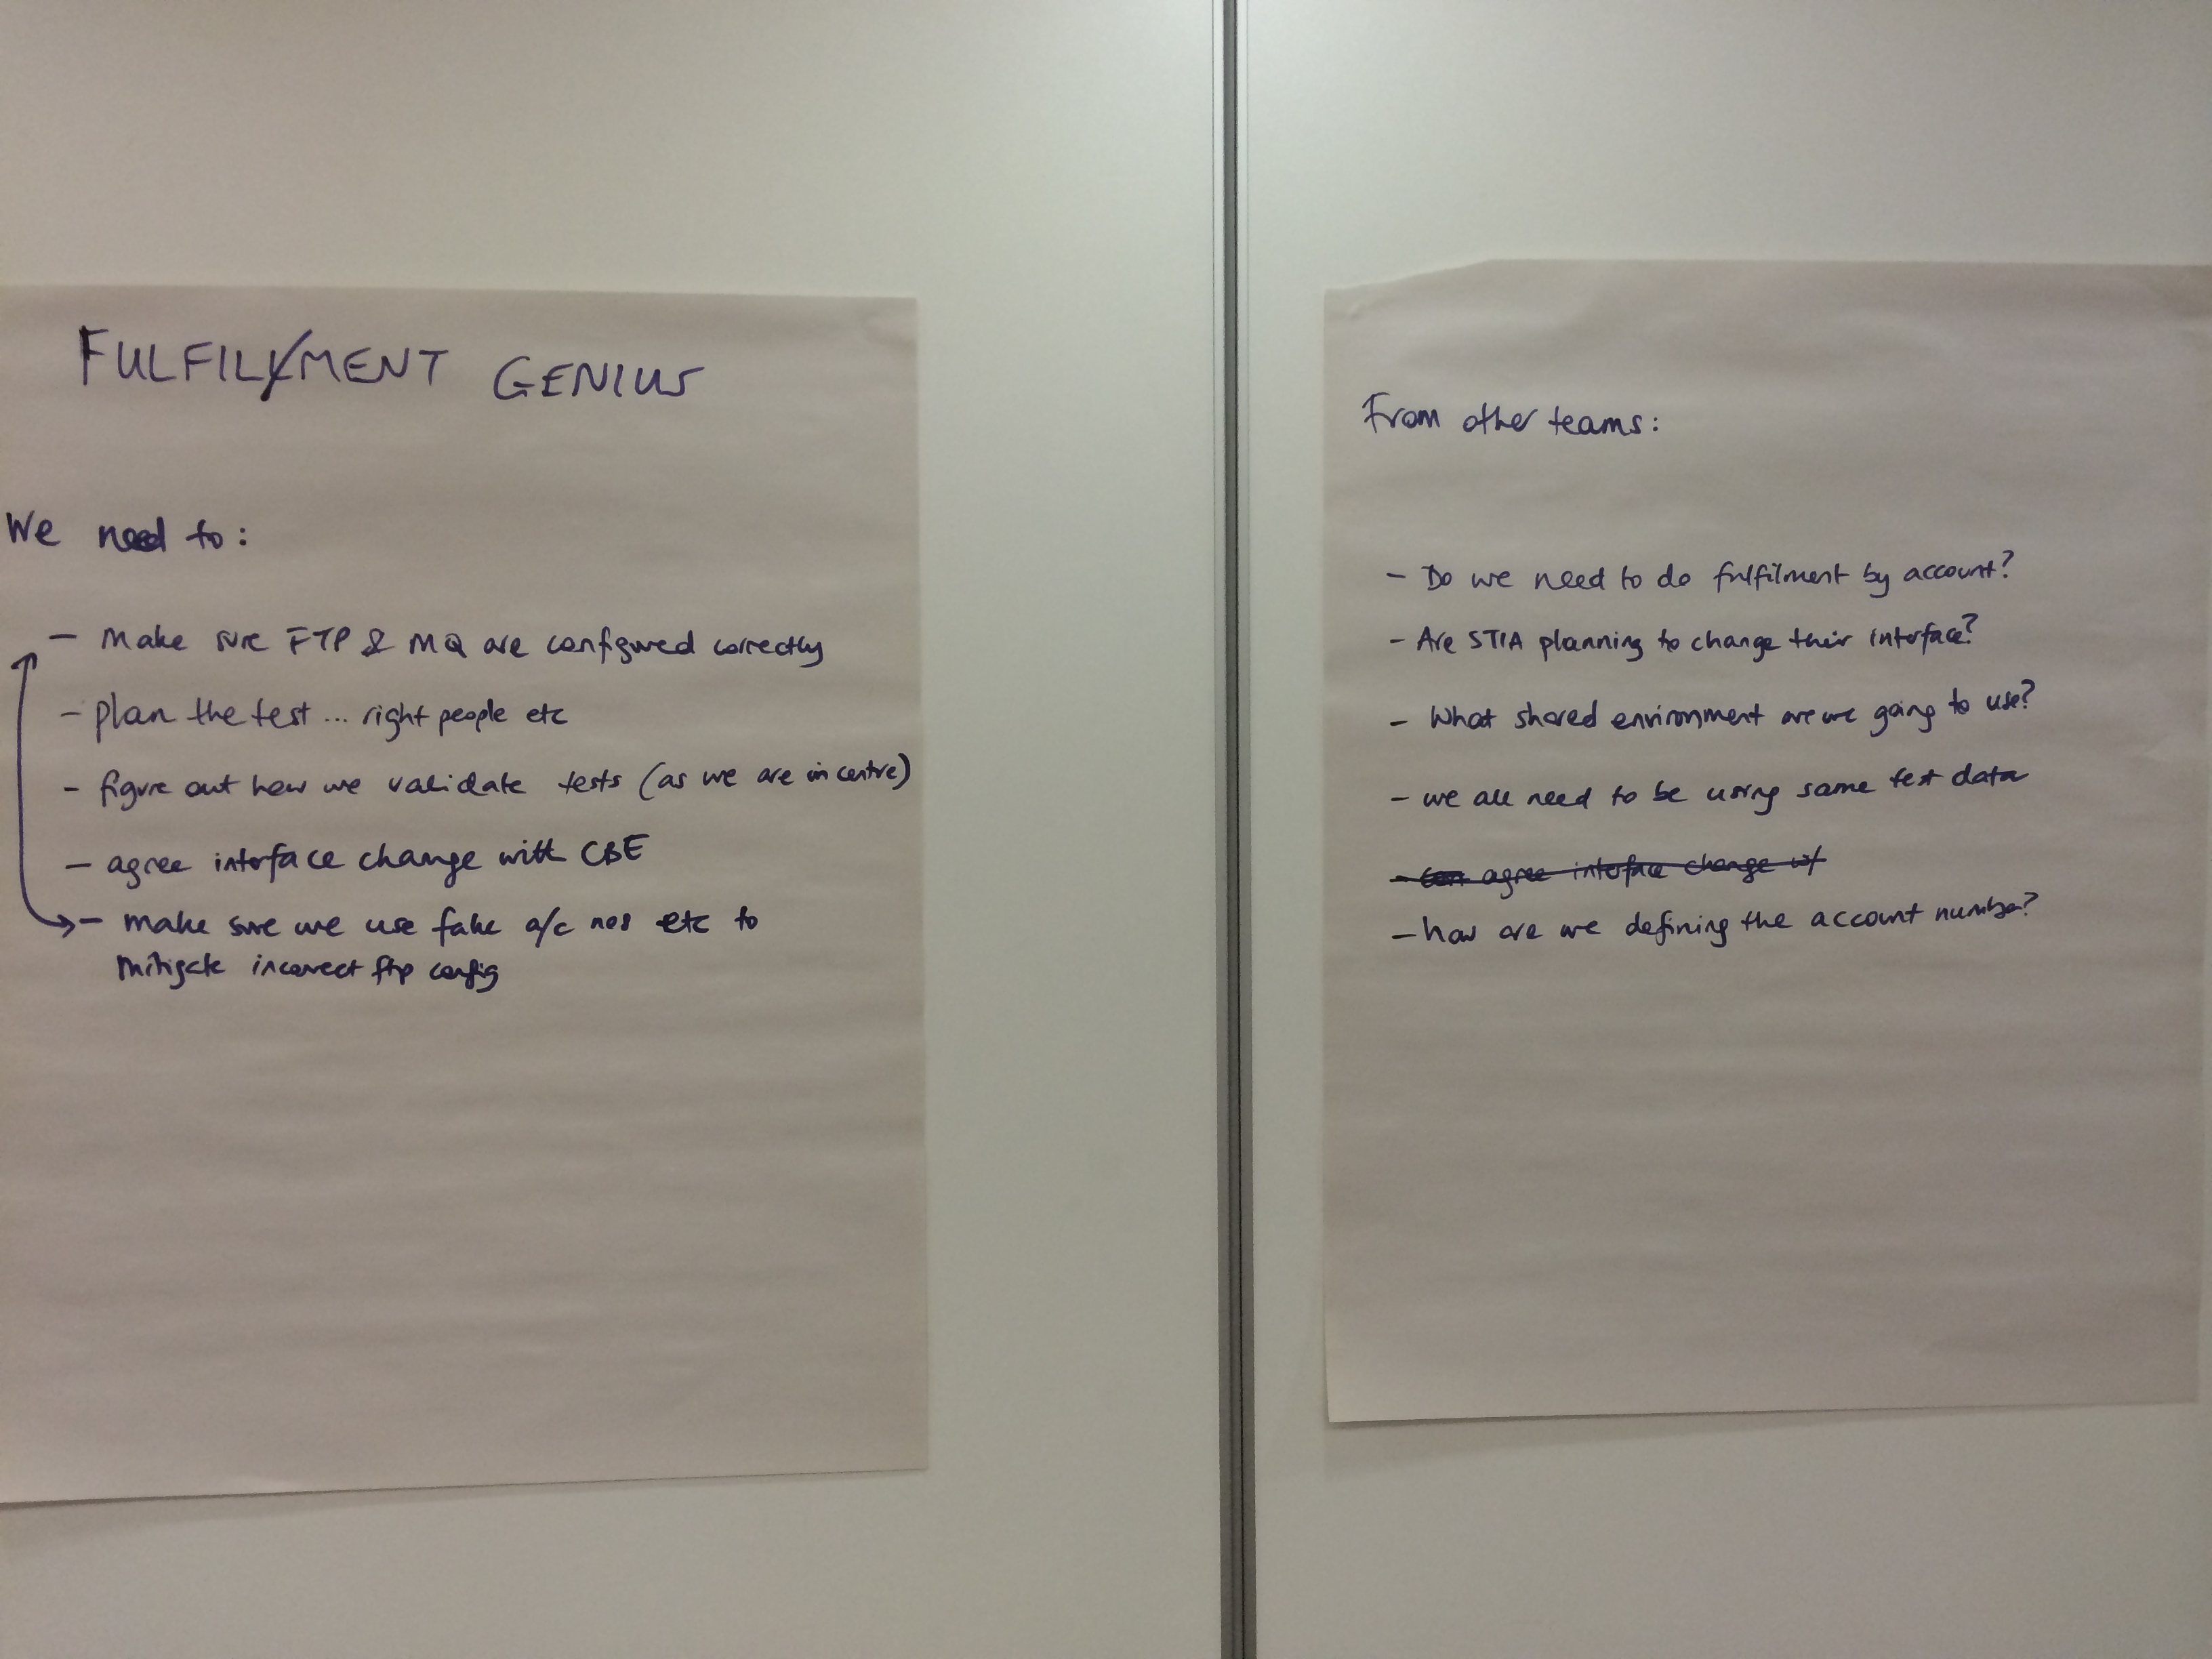 FULFILMENT GENIUS
We need to:
- Make sure FTP & MQ are configured correctly
- plan the test ... right people etc
- figure out how we validate tests (as we are in centre)
- agree interface change with CBE
- make sure we use fake a/c nos etc to
mitigate incorrect ftp config
From other teams:
- Do we need to do fulfilment by account?
- Are STIA planning to change their interface?
- What shared environment are we going to use?
- we all need to be using same test data
- agree interface change w/
- how are we defining the account number?